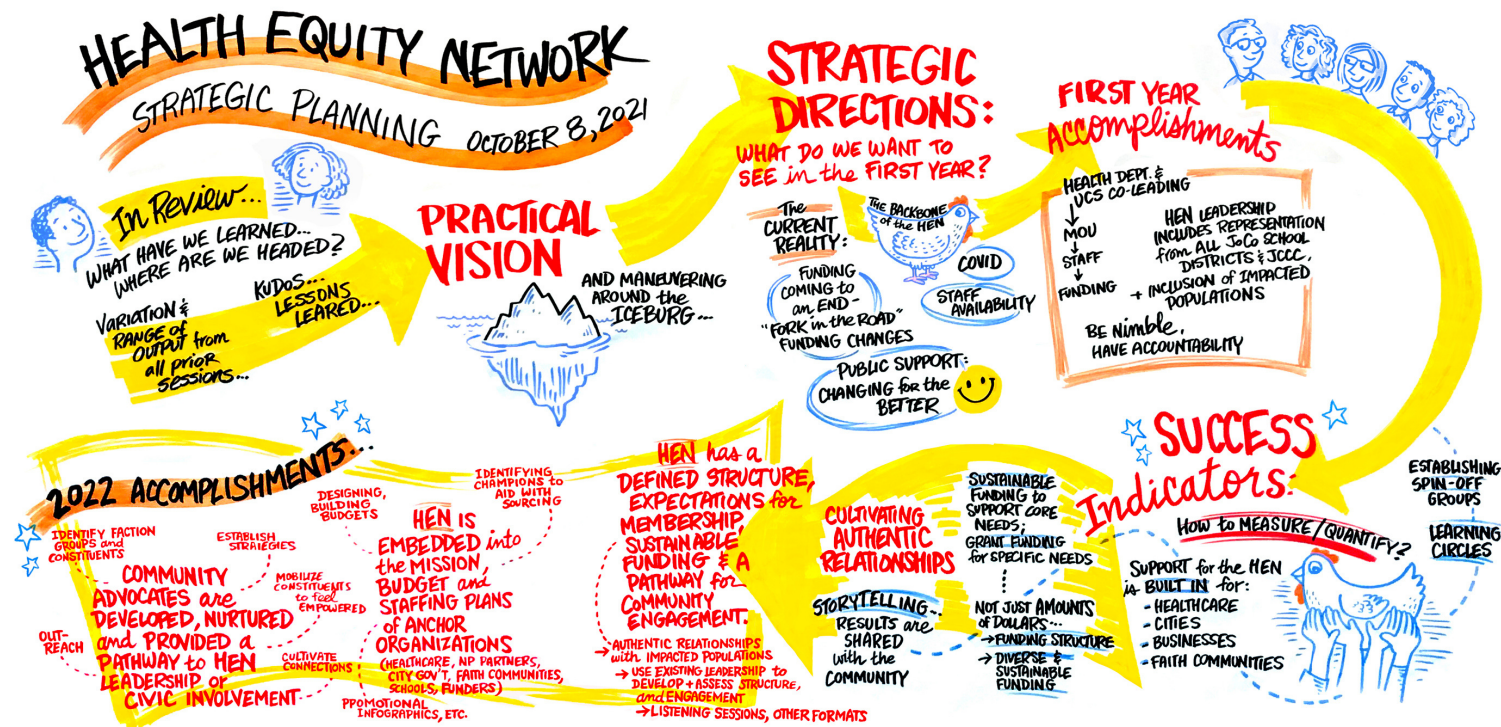 HEALTH EQUITY NETWORK
STRATEGIC PLANNING OCTOBER 8, 2021
In Review...
WHAT HAVE WE LEARNED...
WHERE ARE WE HEADED?
KUDOS...
LESSONS
LEARED...
VARIATION &
RANGE OF
OUTPUT from
all prior
sessions...
PRACTICAL
VISION
AND MANEUVERING
AROUND the
ICEBURG...
STRATEGIC
DIRECTIONS:
WHAT DO WE WANT TO
SEE in the FIRST YEAR?
The
CURRENT
REALITY:
THE BACKBONE
of the HEN
COVID
FUNDING
COMING to
an END -
"FORK in the ROAD"
FUNDING CHANGES
STAFF
AVAILABILITY
PUBLIC SUPPORT:
CHANGING for the
BETTER
FIRST YEAR
ACCOMPLISHMENTS
HEALTH DEPT. &
UCS CO-LEADING
MOU
STAFF
FUNDING
HEN LEADERSHIP
INCLUDES REPRESENTATION
from ALL JoCo SCHOOL
DISTRICTS & JCCC,
+ INCLUSION of IMPACTED
POPULATIONS
BE Nimble,
HAVE ACCOUNTABILITY
SUCCESS
Indicators:
HOW to MEASURE/QUANTIFY?
ESTABLISHING
SPIN-OFF
GROUPS
LEARNING
CIRCLES
SUPPORT for the HEN
is BUILT IN for:
- HEALTHCARE
- CITIES
- BUSINESSES
- FAITH COMMUNITIES
SUSTAINABLE
FUNDING to
SUPPORT CORE
NEEDS;
GRANT FUNDING
for SPECIFIC NEEDS
NOT JUST AMOUNTS
of DOLLARS...
→ FUNDING STRUCTURE
→ DIVERSE &
SUSTAINABLE
FUNDING
CULTIVATING
AUTHENTIC
RELATIONSHIPS
STORYTELLING...
RESULTS are
SHARED
with the
COMMUNITY
HEN has a
DEFINED STRUCTURE,
EXPECTATIONS for
MEMBERSHIP,
SUSTAINABLE
FUNDING & A
PATHWAY for
COMMUNITY
ENGAGEMENT.
→ AUTHENTIC RELATIONSHIPS
with IMPACTED POPULATIONS
→ USE EXISTING LEADERSHIP to
DEVELOP + ASSESS STRUCTURE,
and ENGAGEMENT
→ LISTENING SESSIONS, OTHER FORMATS
2022 ACCOMPLISHMENTS...
IDENTIFYING
CHAMPIONS to
AID WITH
SOURCING
DESIGNING,
BUILDING
BUDGETS
HEN IS
EMBEDDED into
the MISSION,
BUDGET and
STAFFING PLANS
of ANCHOR
ORGANIZATIONS
(HEALTHCARE, NP PARTNERS,
CITY GOV'T, FAITH COMMUNITIES,
SCHOOLS, FUNDERS)
PPOMOTIONAL
INFOGRAPHICS, ETC.
IDENTIFY FACTION
GROUPS and
CONSTITUENTS
ESTABLISH
STRAIEGIES
MOBILIZE
CONSTITUENTS
to feel
EMPOWERED
COMMUNITY
ADVOCATES are
DEVELOPED, NURTURED
and PROVIDED a
PATHWAY to HEN
LEADERSHIP or
CIVIC INVOLVEMENT
OUT-
REACH
CULTIVATE
CONNECTIONS